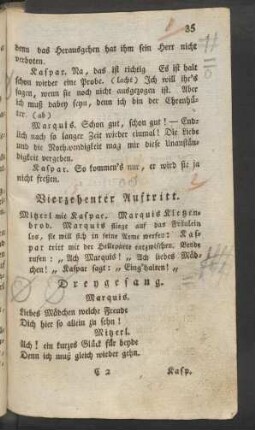 35
denn das Herausgehen hat ihm sein Herr nicht
verboten.
Kaspar. Na, das ist richtig Es ist halt
schon wieder eine Probe. (lacht) Ich will ihr's
sagen, wenn sie noch nicht ausgezogen ist. Aber
ich muß dabey seyn, denn ich bin der Ehrenhü-
ter. (ab)
Marquis. Schon gut, schon gut! — End-
lich nach so langer Zeit wieder einmal! Die Liebe
und die Nothwendigkeit mag mir diese Unanstän-
digkeit vergeben.
Kaspar. So kommen's nur, er wird sie ja
nicht fressen.
Vierzehenter Auftritt.
Mitzerl mit Kaspar. Marquis Kletzen-
brod. Marquis fliegt auf das Fräulein
los, sie will sich in seine Arme werfen: Kas-
par tritt mit der Helleparte entzwischen. Beyde
rufen: „Ach Marquis! „Ach liebes Mäd-
chen! „ Kaspar sagt: „ Eing'halten! „
Dreygesang.
Marquis.
Liebes Mädchen welche Freude
Dich hier so allein zu sehn!
Mitzerl.
Ach! ein kurzes Glück für beyde
Denn ich muß gleich wieder gehn.
C 2 Kasp.